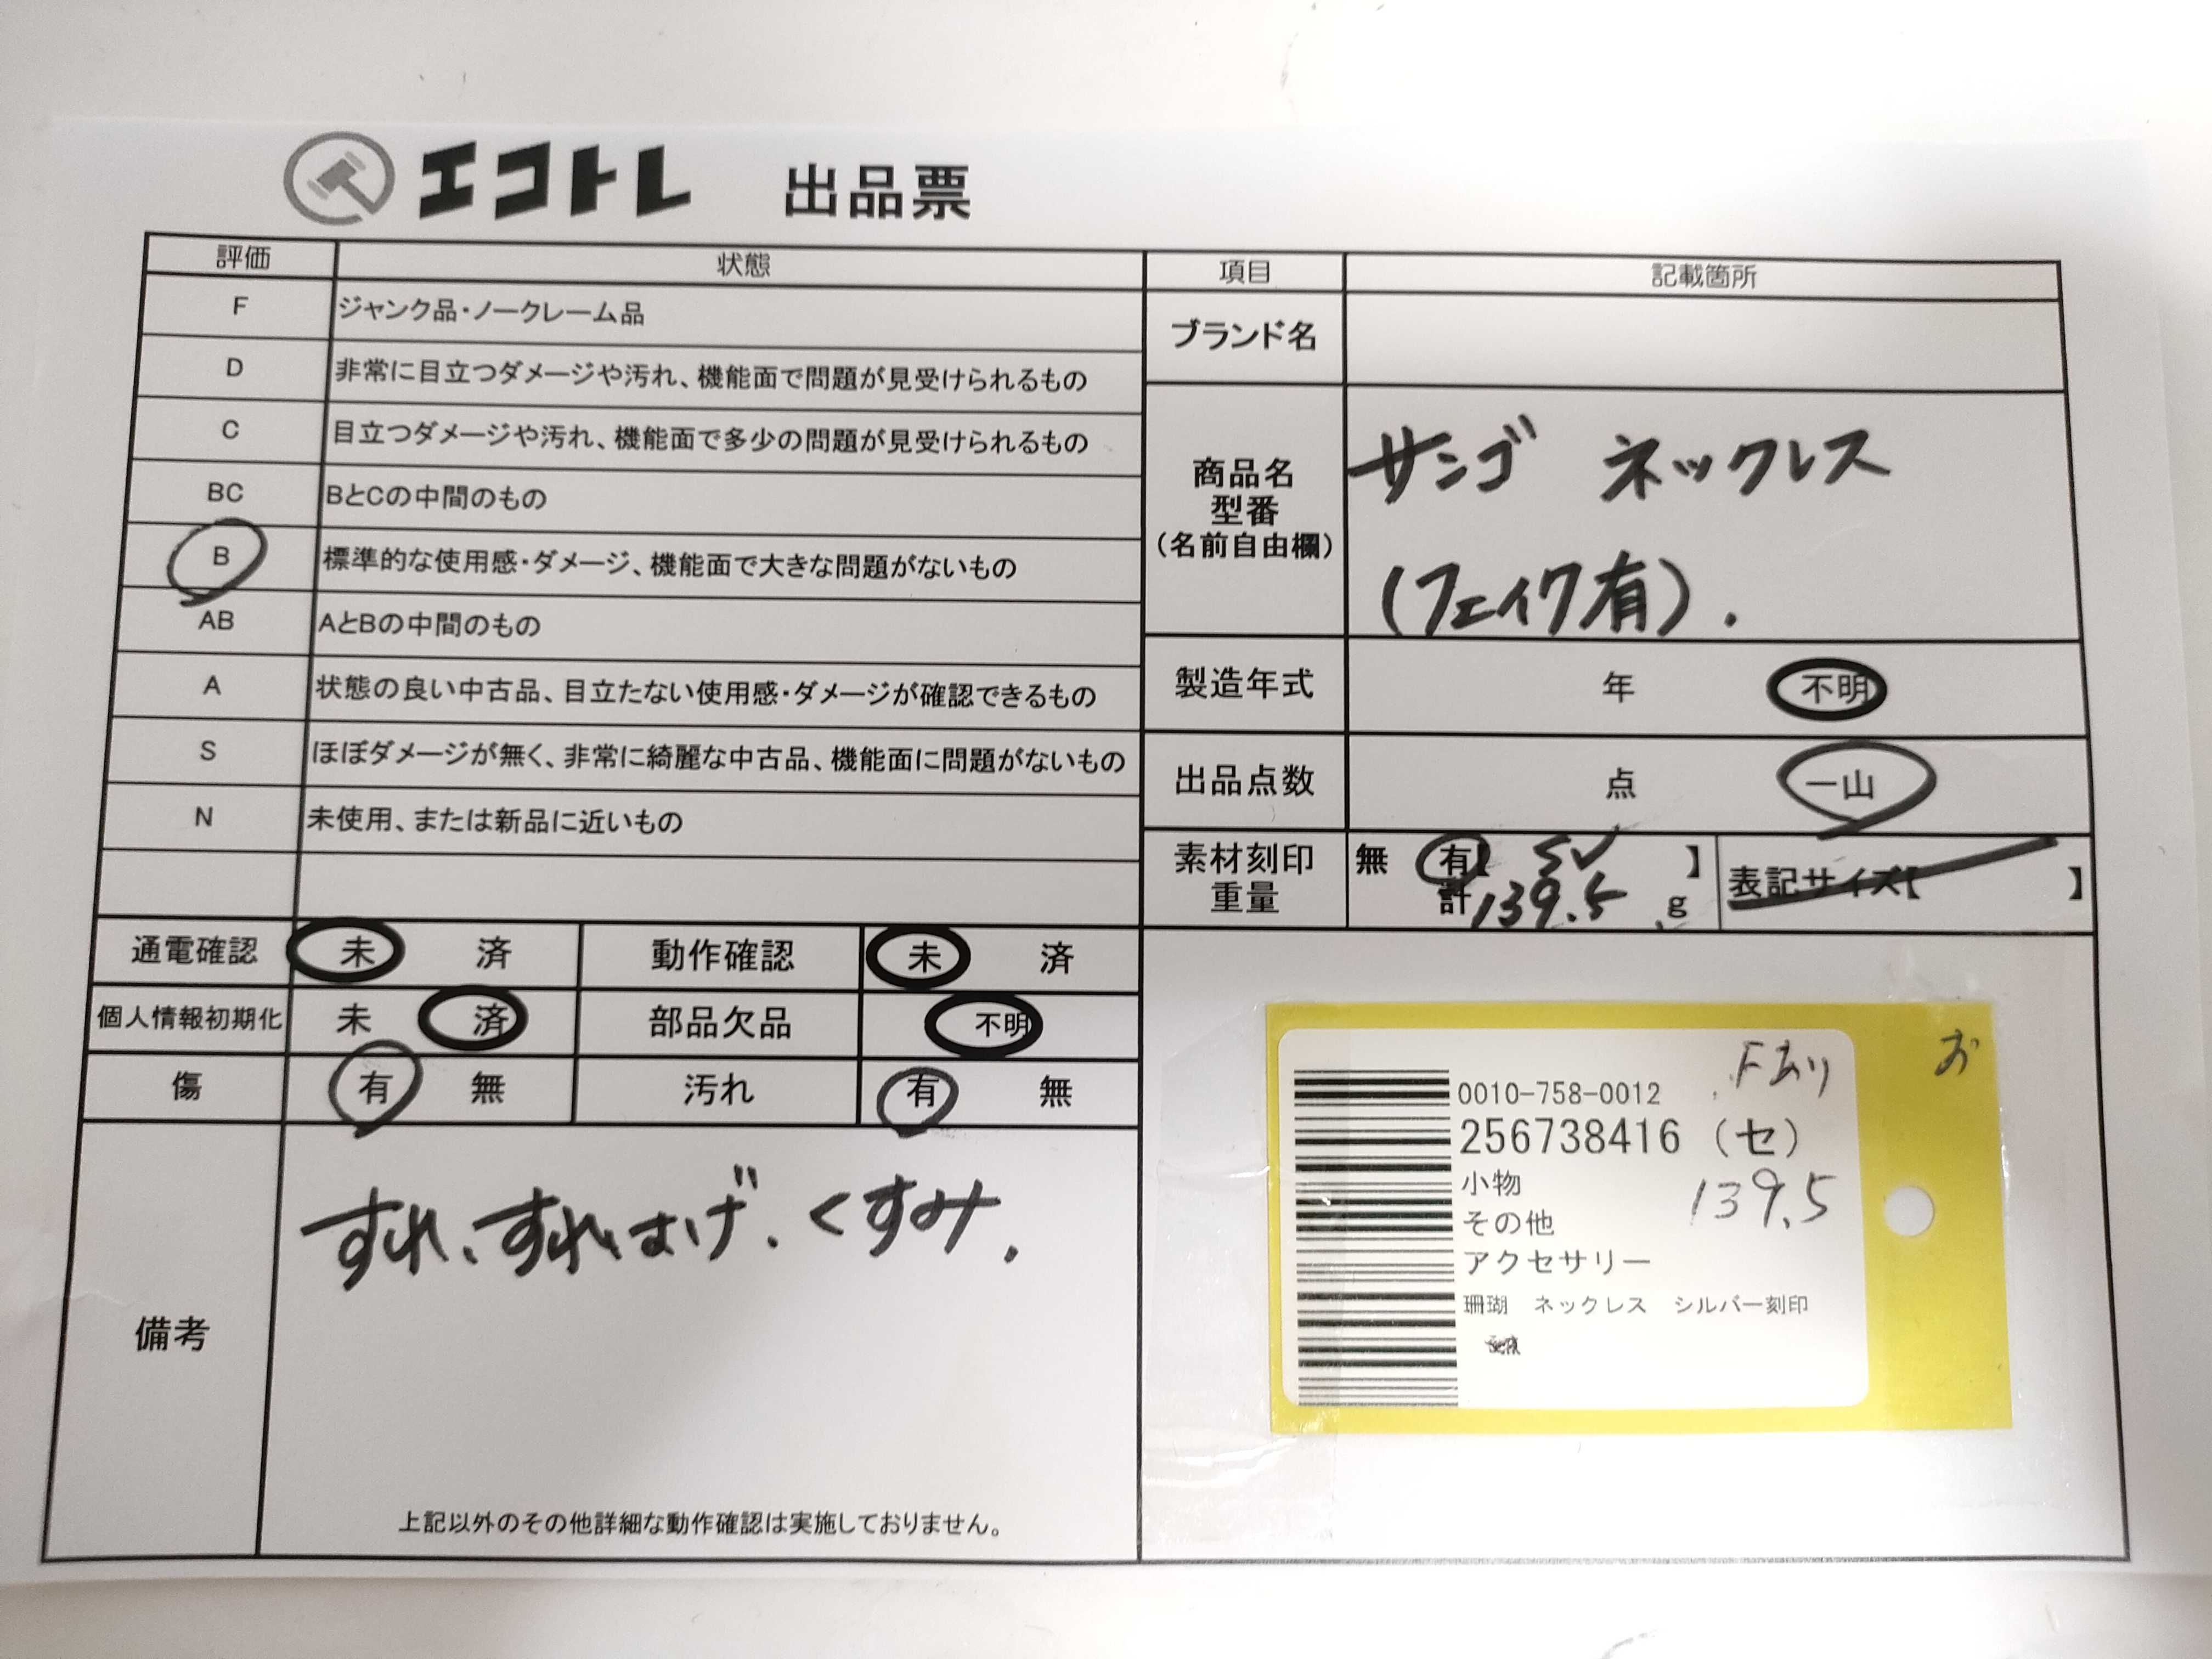 エコトレ 出品票
評価 状態
F ジャンク品・ノークレーム品
D 非常に目立つダメージや汚れ、機能面で問題が見受けられるもの
C 目立つダメージや汚れ、機能面で多少の問題が見受けられるもの
BC BとCの中間のもの
B 標準的な使用感・ダメージ、機能面で大きな問題がないもの
AB AとBの中間のもの
A 状態の良い中古品、目立たない使用感・ダメージが確認できるもの
S ほぼダメージが無く、非常に綺麗な中古品、機能面に問題がないもの
N 未使用、または新品に近いもの
通電確認 未 済 動作確認 未 済
個人情報初期化 未 済 部品欠品 不明
傷 有 無 汚れ 有 無
備考
すれ、すれはげ、くすみ.
上記以外のその他詳細な動作確認は実施しておりません。
項目 記載箇所
ブランド名
商品名
型番
(名前自由欄)
サンゴ ネックレス
(フェイク有).
製造年式 年 不明
出品点数 点 一山
素材刻印
重量
無 有【 SV 】
計 139.5 g
表記サイズ【 】
Fあり お
0010-758-0012
256738416 (セ)
小物 139.5
その他
アクセサリー
珊瑚 ネックレス シルバー刻印